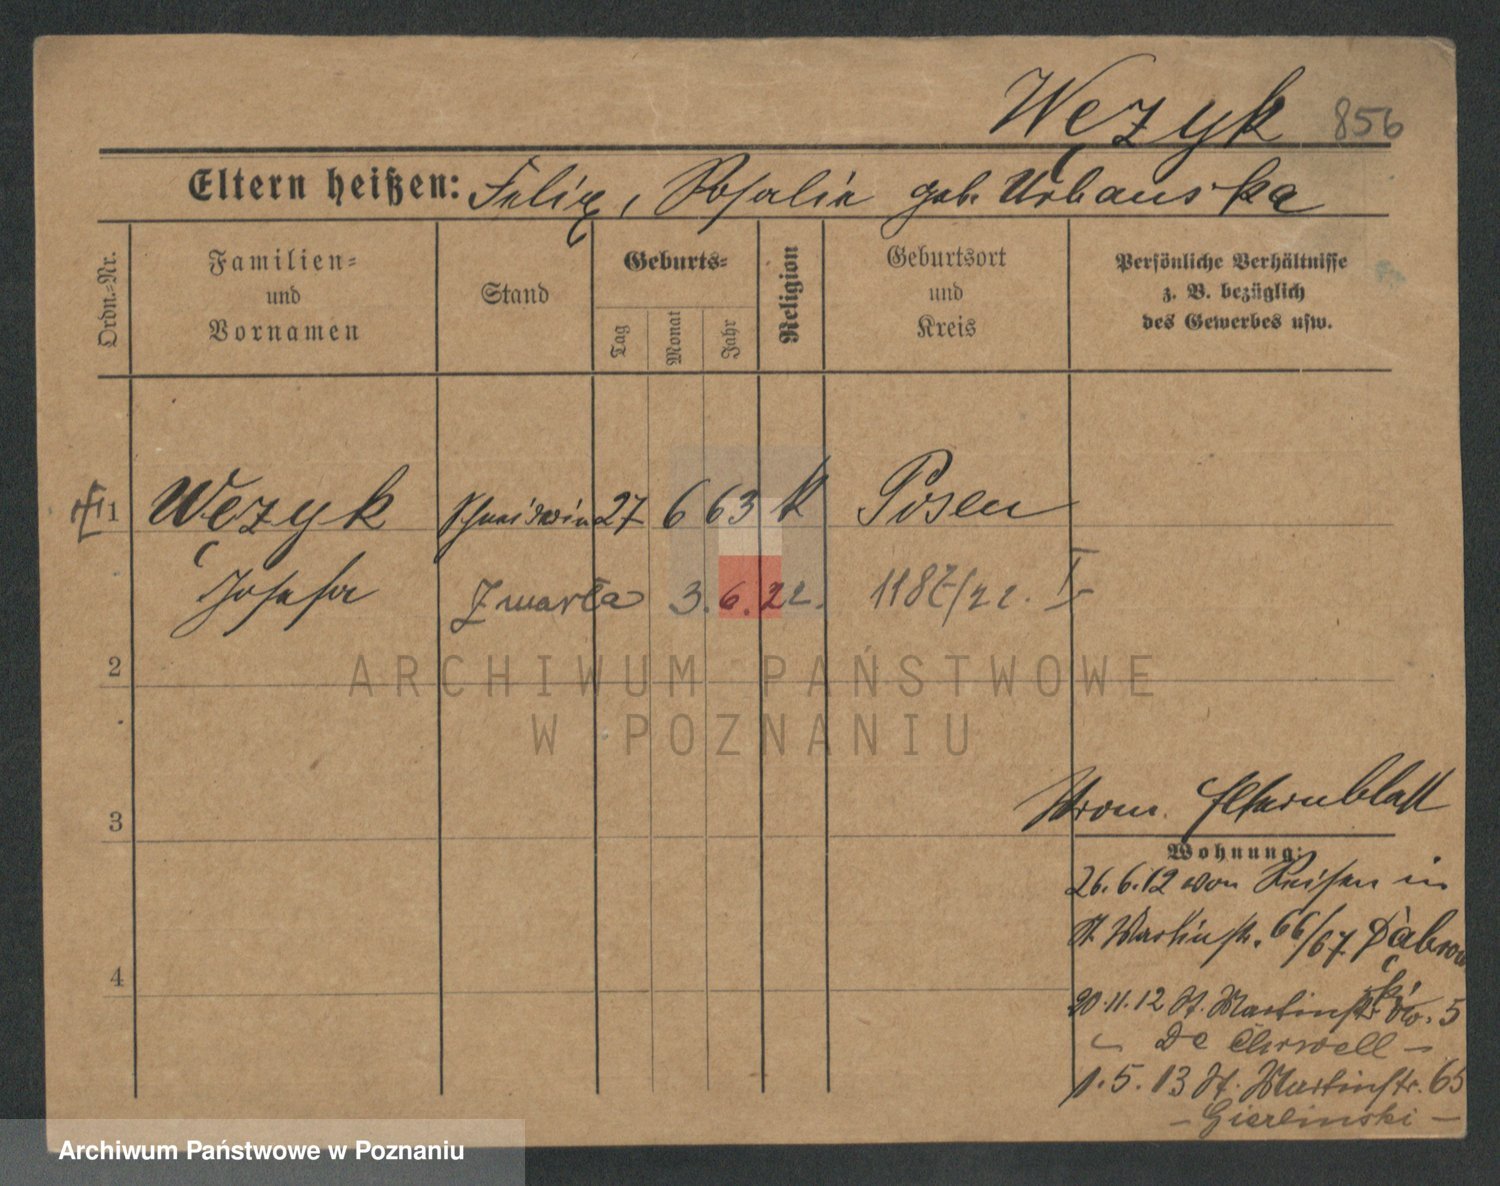 Wężyk 856
Eltern heißen: Felix, Rosalie geb. Urbanska
Ordn.-Nr.
Familien-
und
Vornamen
Stand
Geburts-
Tag
Monat
Jahr
Religion
Geburtsort
und
Kreis
Persönliche Verhältnisse
z. B. bezüglich
des Gewerbes usw.
1 Węzyk Schneiderin 27 6 63 k Posen
Josefa Zmarła 3.6.22. 1187/22. I
2
ARCHIWUM PAŃSTWOWE
W POZNANIU
3
Elternblatt
Wohnung:
26.6.12 von Reisen in
St. Martinstr. 66/67. Dąbrow
ski
4
20.11.12 St. Martinstr. 5
1.5.13 St. Martinstr. 65
- Gierlinski -
Archiwum Państwowe w Poznaniu